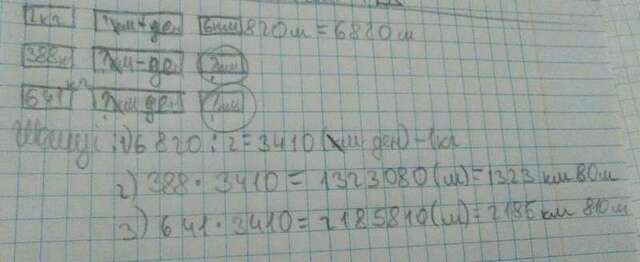 1кг хм-ден 6км 820м=6820м
388кг хм-ден ?км
641кг хм ден ?км
Шешуі: 1) 6820:2=3410(м-ден)-1кг
2) 388·3410=1323080(м)=1323км 80м
3) 641·3410=2185810(м)=2185км 810м